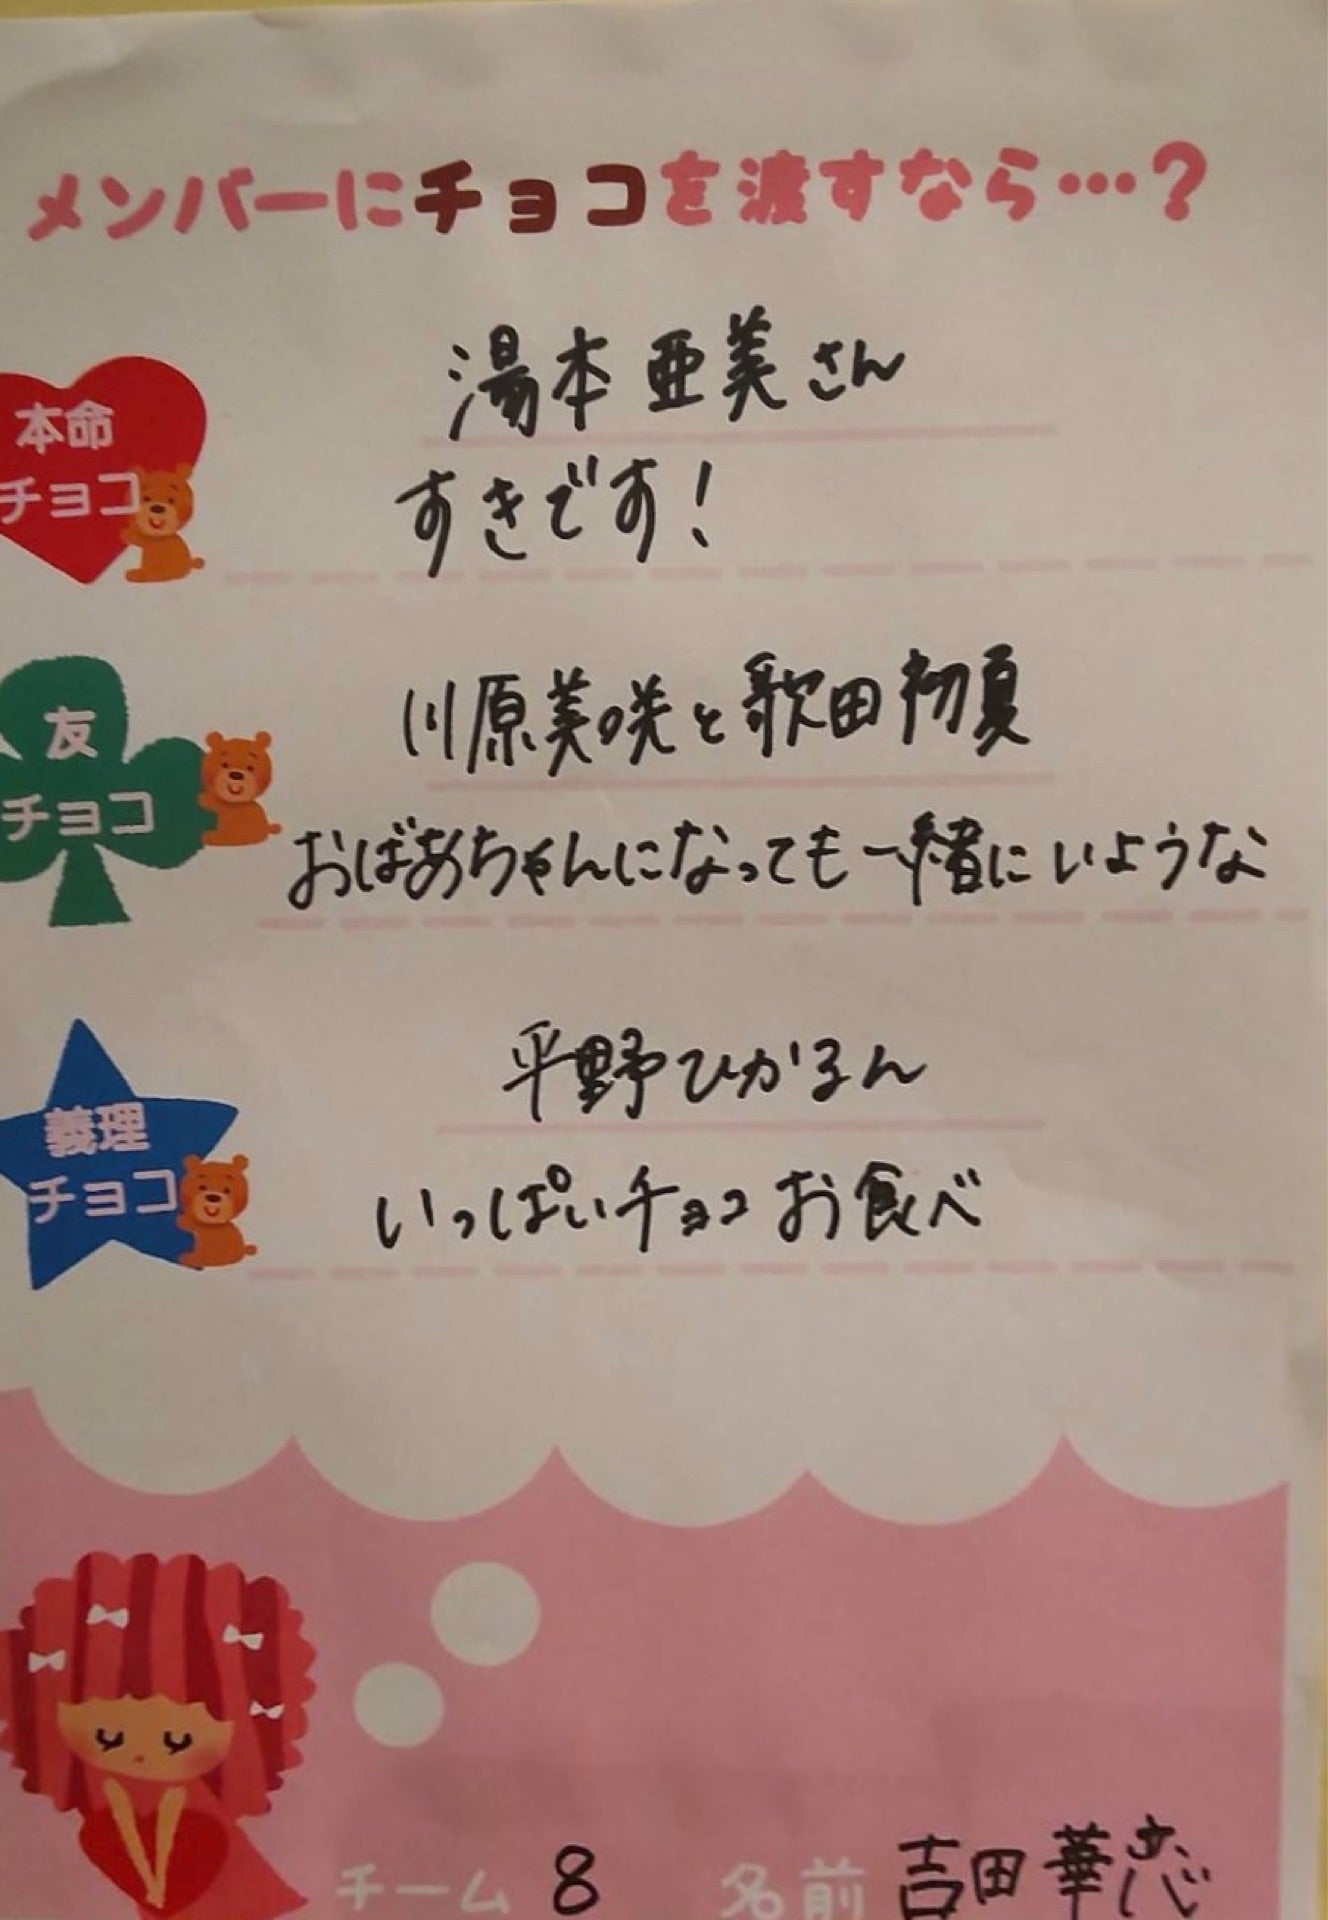 メンバーにチョコを渡すなら…?
本命
チョコ
湯本亜美さん
すきです!
友
チョコ
川原美咲と歌田初夏
おばあちゃんになっても一緒にいような
義理
チョコ
平野ひかるん
いっぱいチョコお食べ
チーム 8 名前 吉田華恋